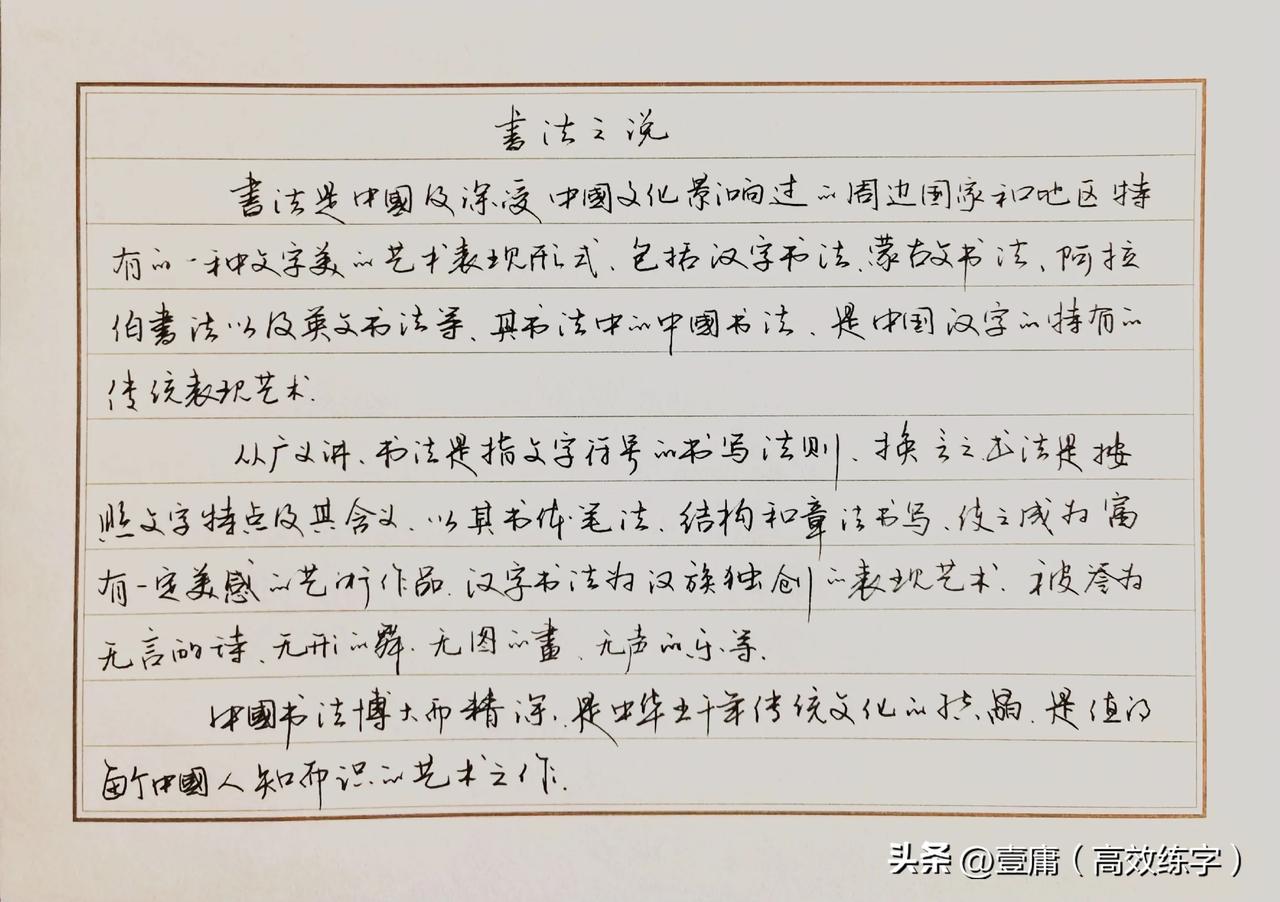 书法之说
書法是中國及深受中國文化景响过的周边国家和地区特
有的一种文字美的艺术表现形式、包括汉字书法、蒙古文书法、阿拉
伯書法以及英文书法等、其书法中的中國书法、是中国汉字的特有的
传统表现艺术.
从广义讲、书法是指文字符号的书写法则、换言之、书法是按
照文字特点及其含义、以其书体笔法、结构和章法书写、使之成为富
有一定美感的艺术作品.汉字书法为汉族独创的表现艺术.被誉为
无言的诗、无形的舞.无图的畫、无声的乐等.
中國书法博大而精深.是中华五千年传统文化的结晶.是值的
每个中國人知而识的艺术之作.
头条 @壹庸（高效练字）